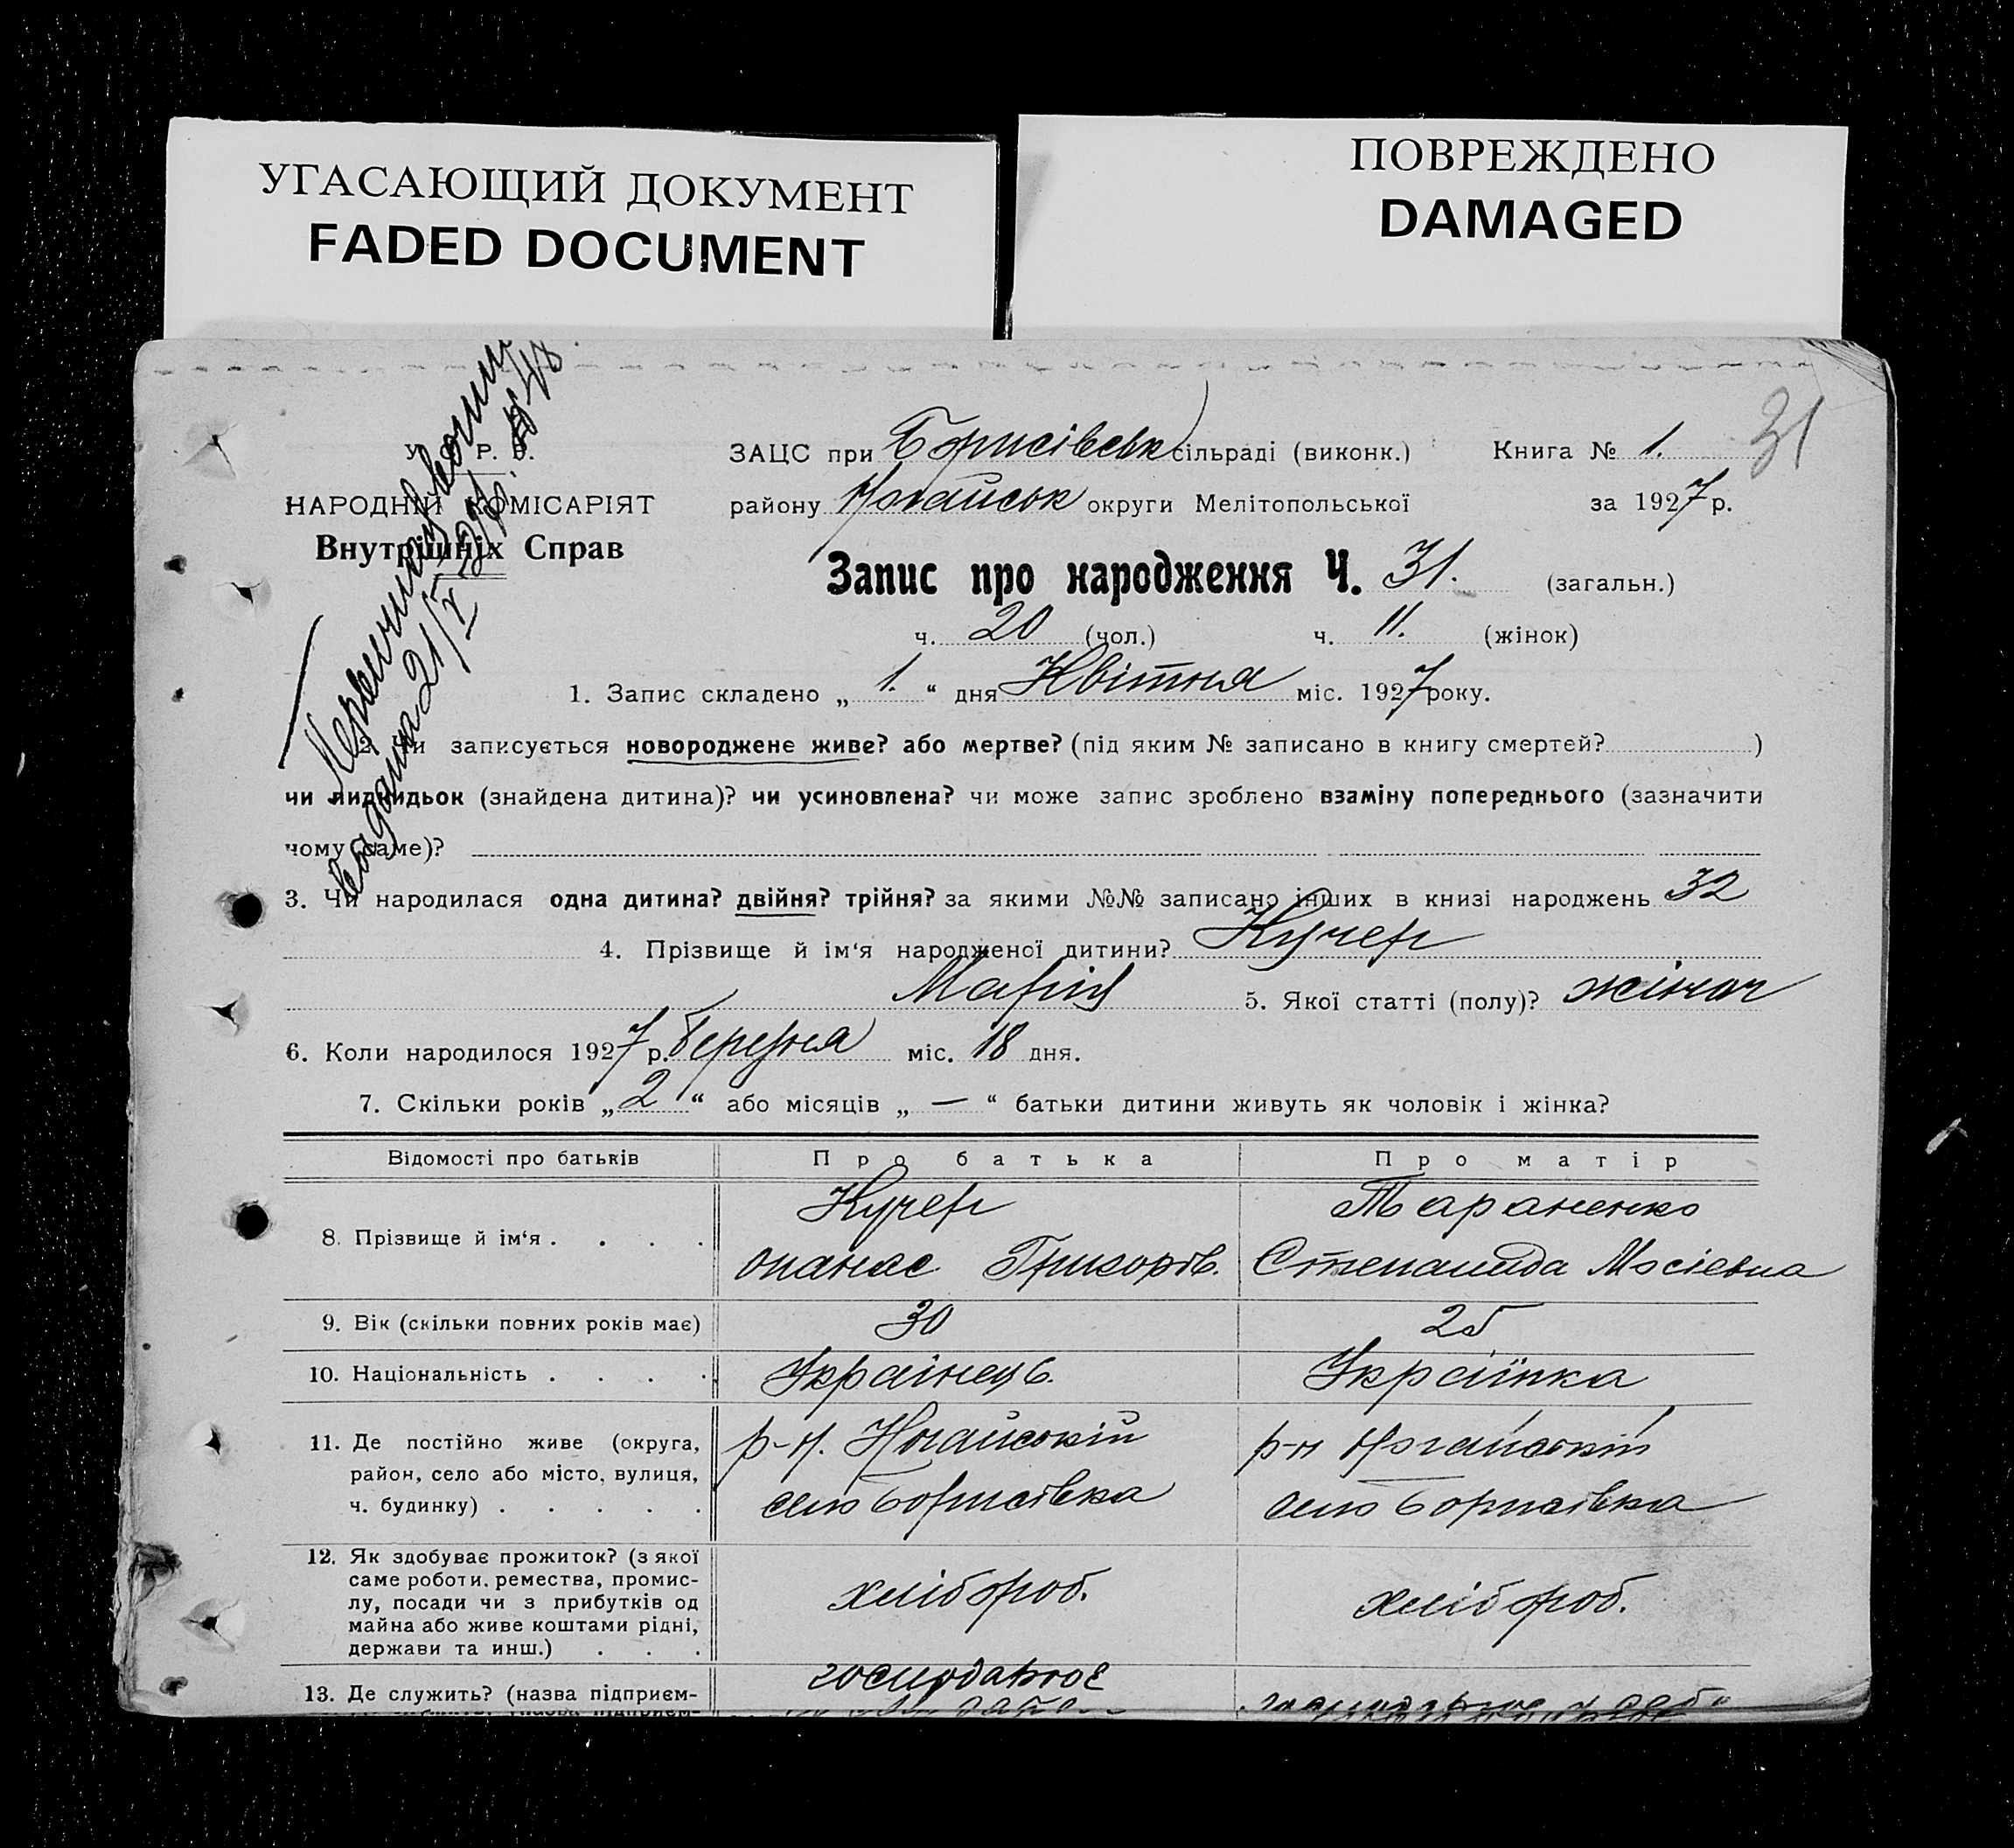 УГАСАЮЩИЙ ДОКУМЕНТ
FADED DOCUMENT
ПОВРЕЖДЕНО
DAMAGED
31
У. Р. Р.
НАРОДНІЙ КОМІСАРІЯТ
Внутрішніх Справ
ЗАЦС при Борисівськ сільраді (виконк.) Книга № 1.
району Ногайськ округи Мелітопольської за 1927 р.
Запис про народження Ч. 31. (загальн.)
ч. 20 (чол.) ч. 11. (жінок)
1. Запис складено „ 1. “ дня Квітня міс. 1927 року.
2. Чи записується новороджене живе? або мертве? (під яким № записано в книгу смертей? )
чи пидкидьок (знайдена дитина)? чи усиновлена? чи може запис зроблено взаміну попереднього (зазначити
чому саме)?
3. Чи народилася одна дитина? двійня? трійня? за якими №№ записано інших в книзі народжень 32
4. Прізвище й ім‘я народженої дитини? Кучер
Марія 5. Якої статті (полу)? жіноч
6. Коли народилося 1927 р. березня міс. 18 дня.
7. Скільки років „ 2 “ або місяців „ — “ батьки дитини живуть як чоловік і жінка?
Відомості про батьків Про батька Про матір
8. Прізвище й ім‘я . . . . Кучер Тараненко
Опанас Григорів. Степанида Мосіевна
9. Вік (скільки повних років має) 30 25
10. Національність . . . . Українець. Українка
11. Де постійно живе (округа, район, село або місто, вулиця, ч. будинку) . . . . . р-н. Ногайській р-н Ногайській
село Борисівка село Борисівка
12. Як здобуває прожиток? (з якої
саме роботи, ремества, промис-
лу, посади чи з прибутків од
майна або живе коштами рідні,
держави та инш.) . . . хлібороб. хлібороб.
13. Де служить? (назва підприєм-